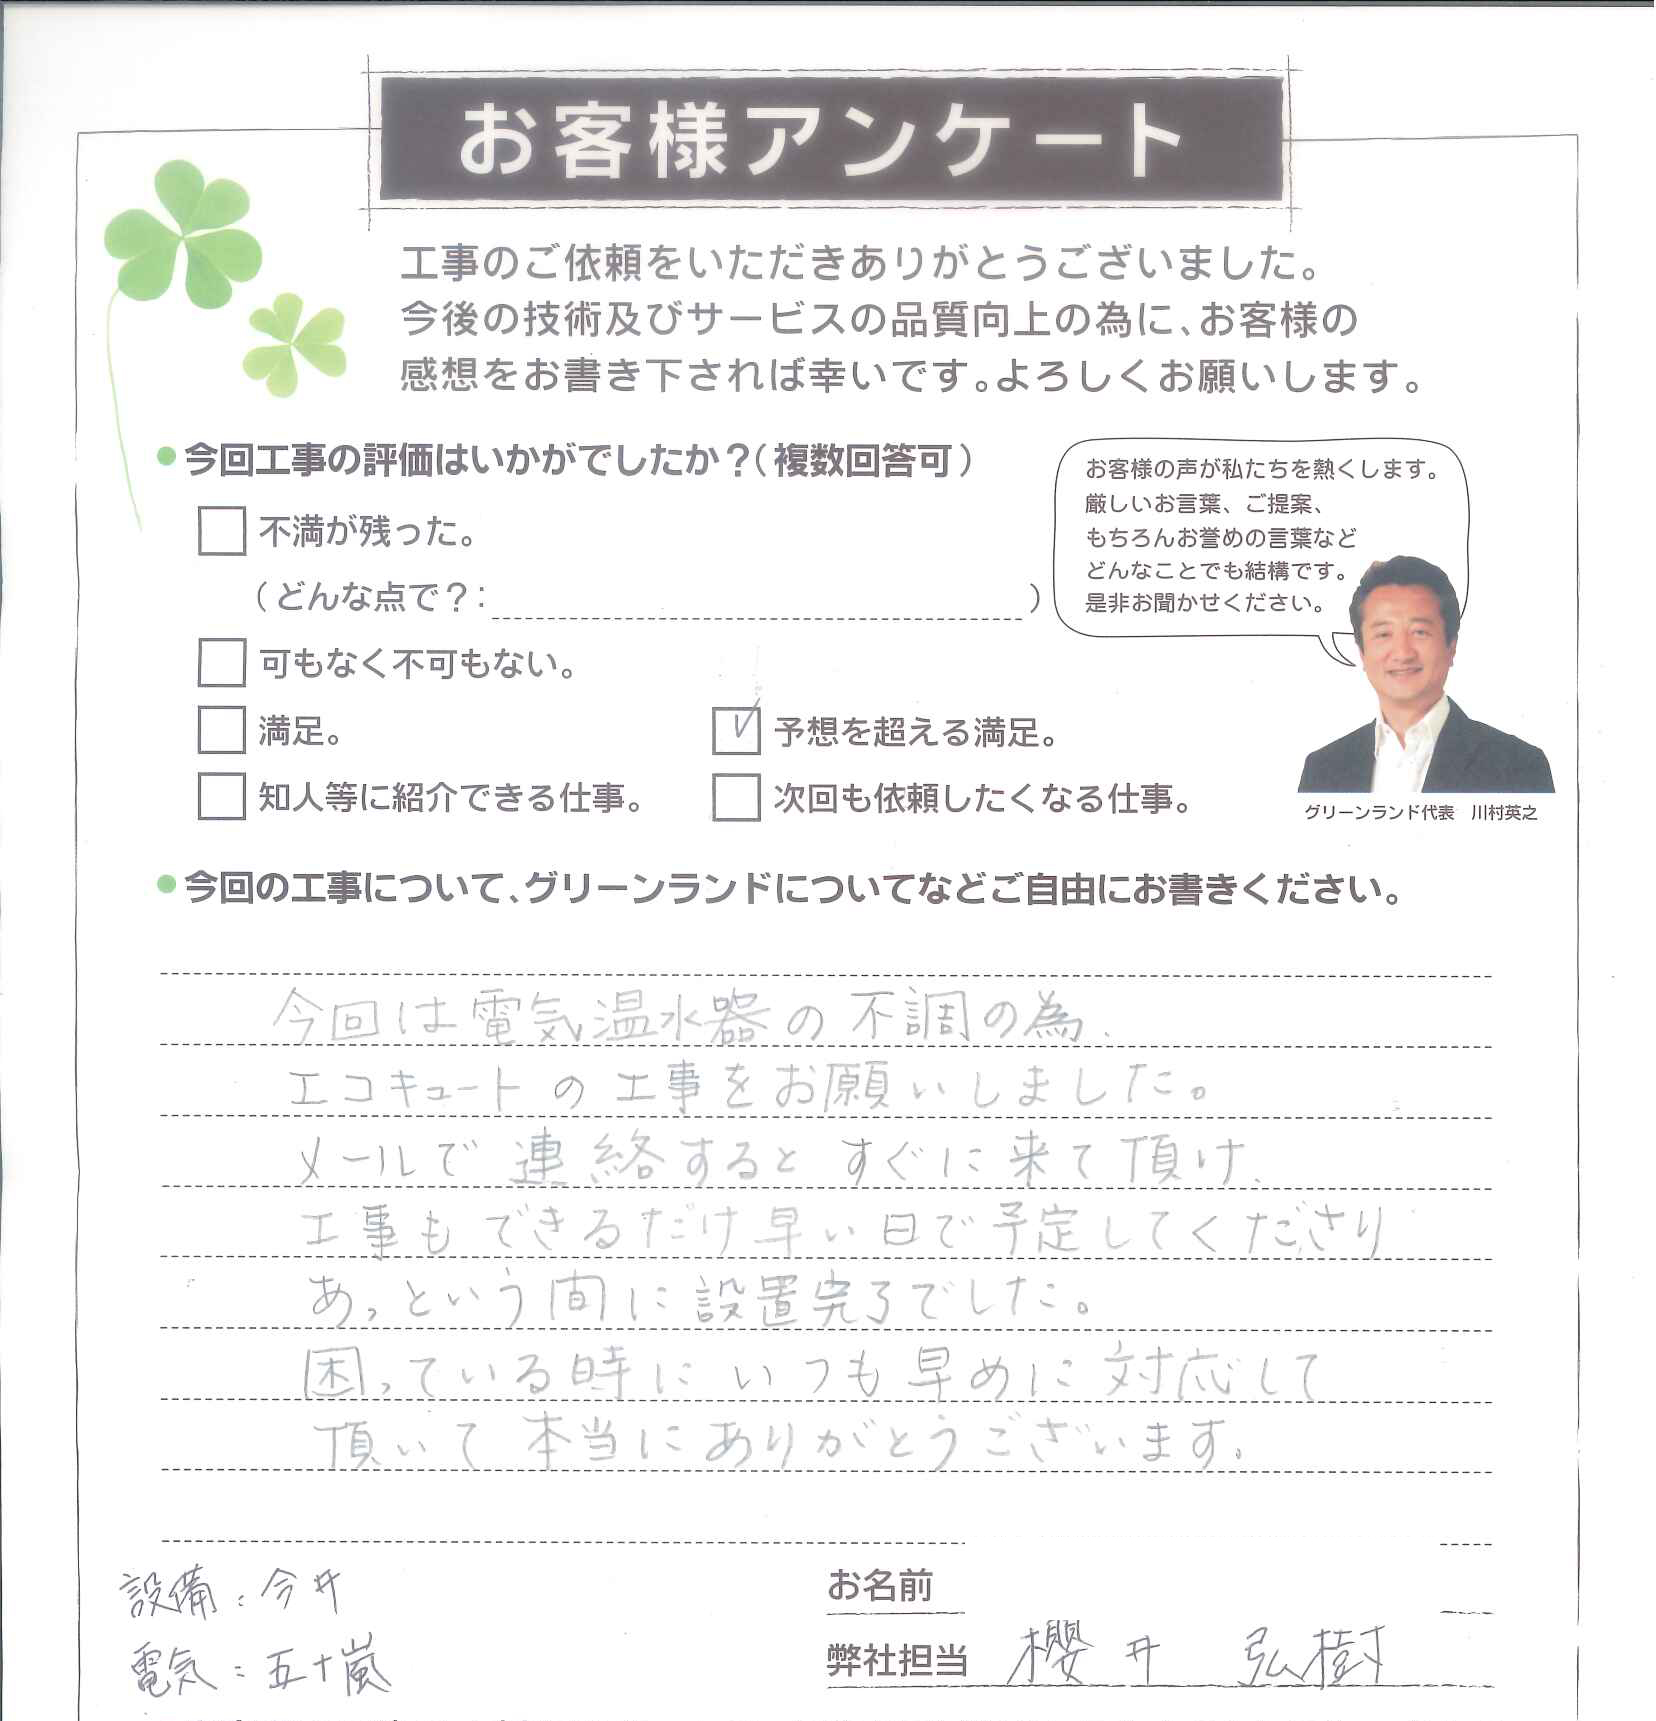 お客様アンケート
工事のご依頼をいただきありがとうございました。
今後の技術及びサービスの品質向上の為に、お客様の
感想をお書き下されば幸いです。よろしくお願いします。
今回工事の評価はいかがでしたか？(複数回答可)
不満が残った。
(どんな点で？: )
可もなく不可もない。
満足。
予想を超える満足。
知人等に紹介できる仕事。
次回も依頼したくなる仕事。
お客様の声が私たちを熱くします。
厳しいお言葉、ご提案、
もちろんお誉めの言葉など
どんなことでも結構です。
是非お聞かせください。
グリーンランド代表 川村英之
今回の工事について、グリーンランドについてなどご自由にお書きください。
今回は電気温水器の不調の為、
エコキュートの工事をお願いしました。
メールで連絡するとすぐに来て頂け、
工事もできるだけ早い日で予定してくださり
あっという間に設置完了でした。
困っている時にいつも早めに対応して
頂いて本当にありがとうございます。
設備：今井
電気：五十嵐
お名前
弊社担当 櫻井 弘樹